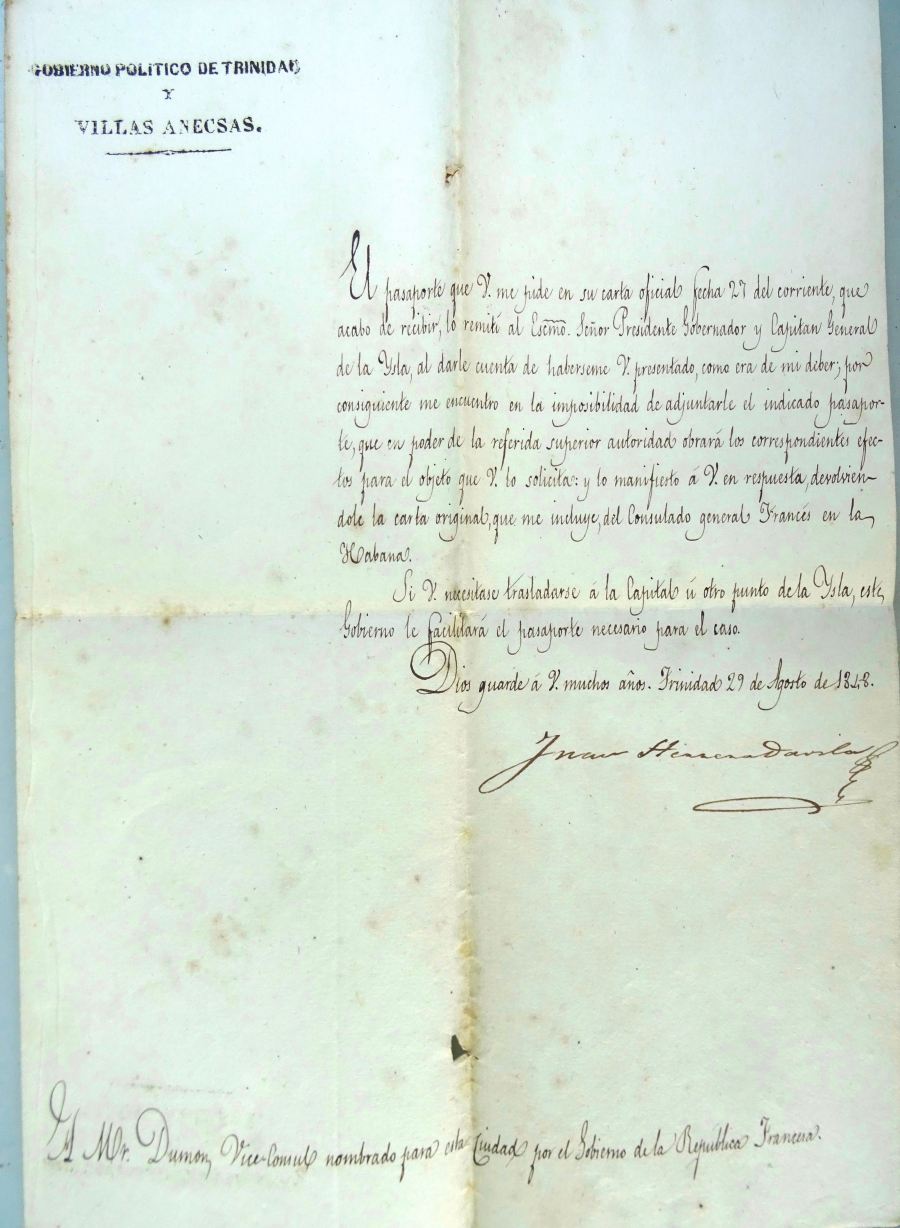 GOBIERNO POLITICO DE TRINIDAD
Y
VILLAS ANECSAS.
El pasaporte que V. me pide en su carta oficial fecha 27 del corriente, que
acabo de recibir, lo remití al Escmo. Señor Presidente Gobernador y Capitan General
de la Ysla, al darle cuenta de haberseme V. presentado, como era de mi deber; por
consiguiente me encuentro en la imposibilidad de adjuntarle el indicado pasapor-
te, que en poder de la referida superior autoridad obrará los correspondientes efec-
tos para el objeto que V. lo solicita: y lo manifiesto á V. en respuesta, devolvien-
dole la carta original, que me incluye, del Consulado general Francés en la
Habana.
Si V. necesitase trasladarse á la Capital ú otro punto de la Ysla, este
Gobierno le facilitará el pasaporte necesario para el caso.
Dios guarde á V. muchos años. Trinidad 29 de Agosto de 1848.
Juan Herrera Davila
A Mr. Dumon, Vice-Consul nombrado para esta Ciudad por el Gobierno de la Republica Francesa.